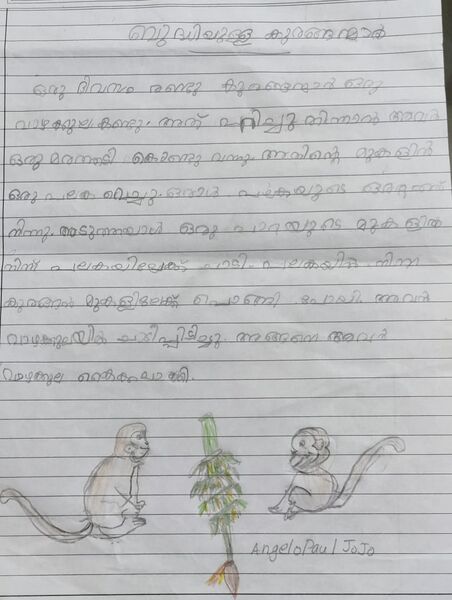 ബുദ്ധിയുള്ള കുരങ്ങന്മാർ
ഒരു ദിവസം രണ്ടു കുരങ്ങന്മാർ ഒരു
വാഴക്കുല കണ്ടു. അത് പറിച്ചു തിന്നാൻ അവർ
ഒരു മരത്തടി കൊണ്ടു വന്നു. അതിന്റെ മുകളിൽ
ഒരു പലക വെച്ചു. ഒരാൾ പലകയുടെ ഒരറ്റത്ത്
നിന്നു. അടുത്തയാൾ ഒരു പാറയുടെ മുകളിൽ
നിന്ന് പലകയിലേക്ക് ചാടി. പലകയിൽ നിന്ന
കുരങ്ങൻ മുകളിലേക്ക് പൊങ്ങി പോയി. അവൻ
വാഴക്കുലയിൽ ചാടിപ്പിടിച്ചു. അങ്ങനെ അവർ
വാഴക്കുല കൈക്കലാക്കി.
Angelo Paul JoJo